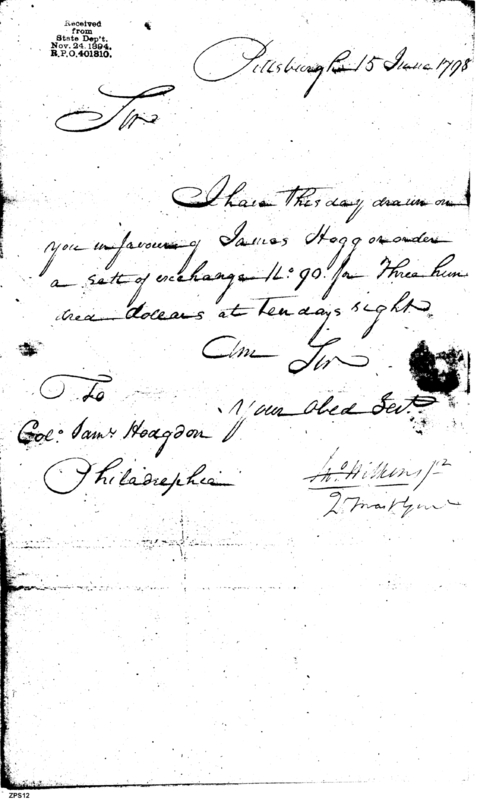 Received
from
State Dep't.
Nov. 24. 1894.
R.P.O. 401310.
Pittsburgh 15 June 1798
Sir
I have this day drawn on
you in favour of James Hogg or order
a sett of exchange No. 90 for Three hun
dred dollars at ten days sight
Am Sir
Your Obed Servt.
To
Colo. Saml Hodgdon
Philadelphia
Jno Wilkins Jr
ZPS12